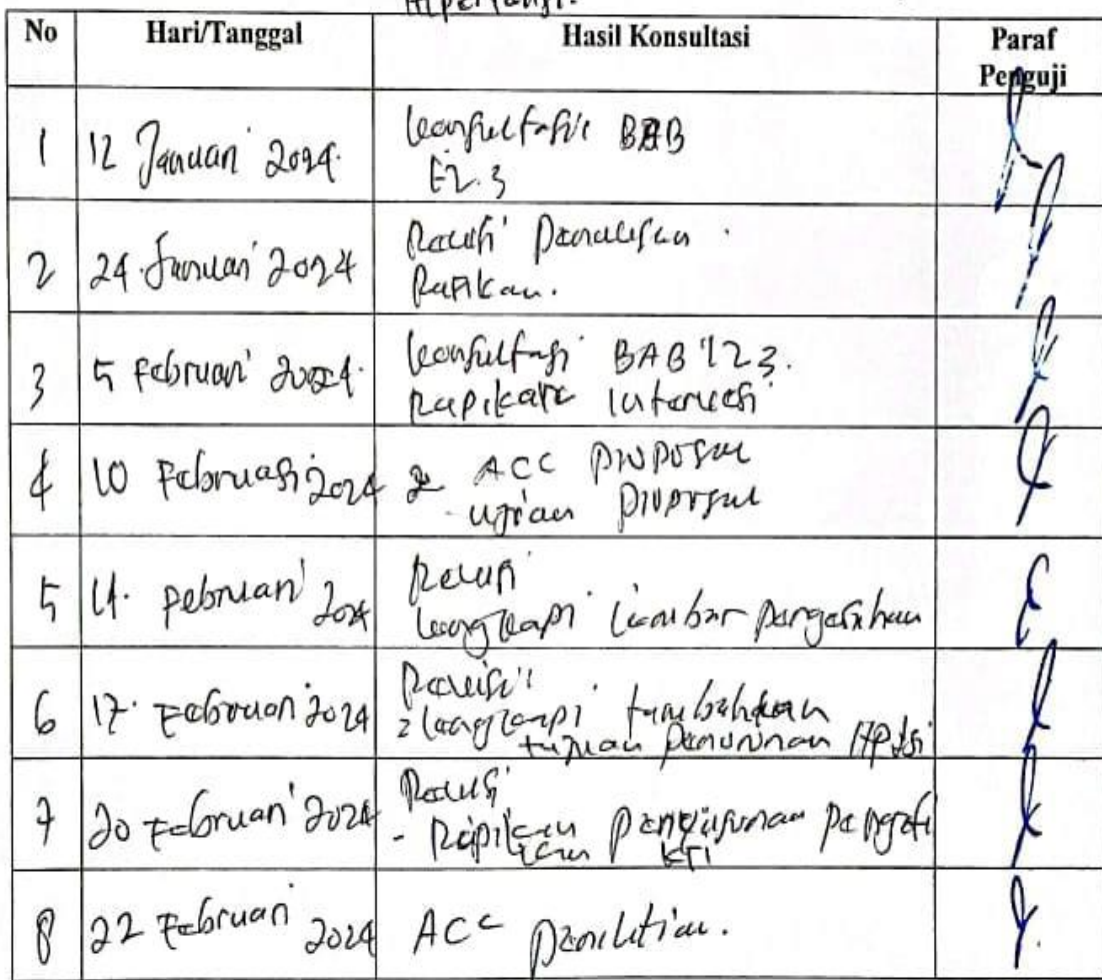 Hipertensi.
No Hari/Tanggal Hasil Konsultasi Paraf
Penguji
1 12 Januari 2024. Konsultasi BAB
1.2.3
2 24 Januari 2024 Revisi Penulisan.
Rapikan.
3 5 Februari 2024. Konsultasi BAB 1 2 3.
Rapikan
4 10 Februari 2024 ACC proposal
- ujian proposal
5 Pebruari 2024 Revisi
Lengkapi lembar pengesahan
6 17. Februari 2024 Revisi
Lengkapi tambahkan
tujuan penurunan
7 20 Februari 2024 Revisi
- Rapikan penyusunan
KTI
8 22 Februari 2024 ACC penelitian.